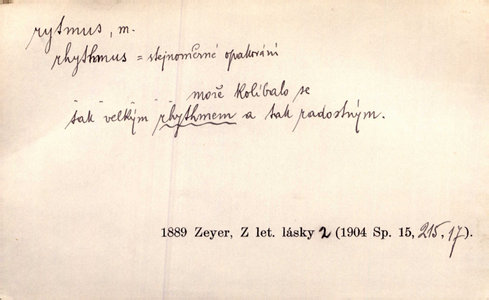 rytmus, m.
rhythmus = stejnoměrné opakování
moře kolíbalo se
tak velkým rhythmem a tak radostným.
1889 Zeyer, Z let. lásky 2 (1904 Sp. 15, 215, 17).